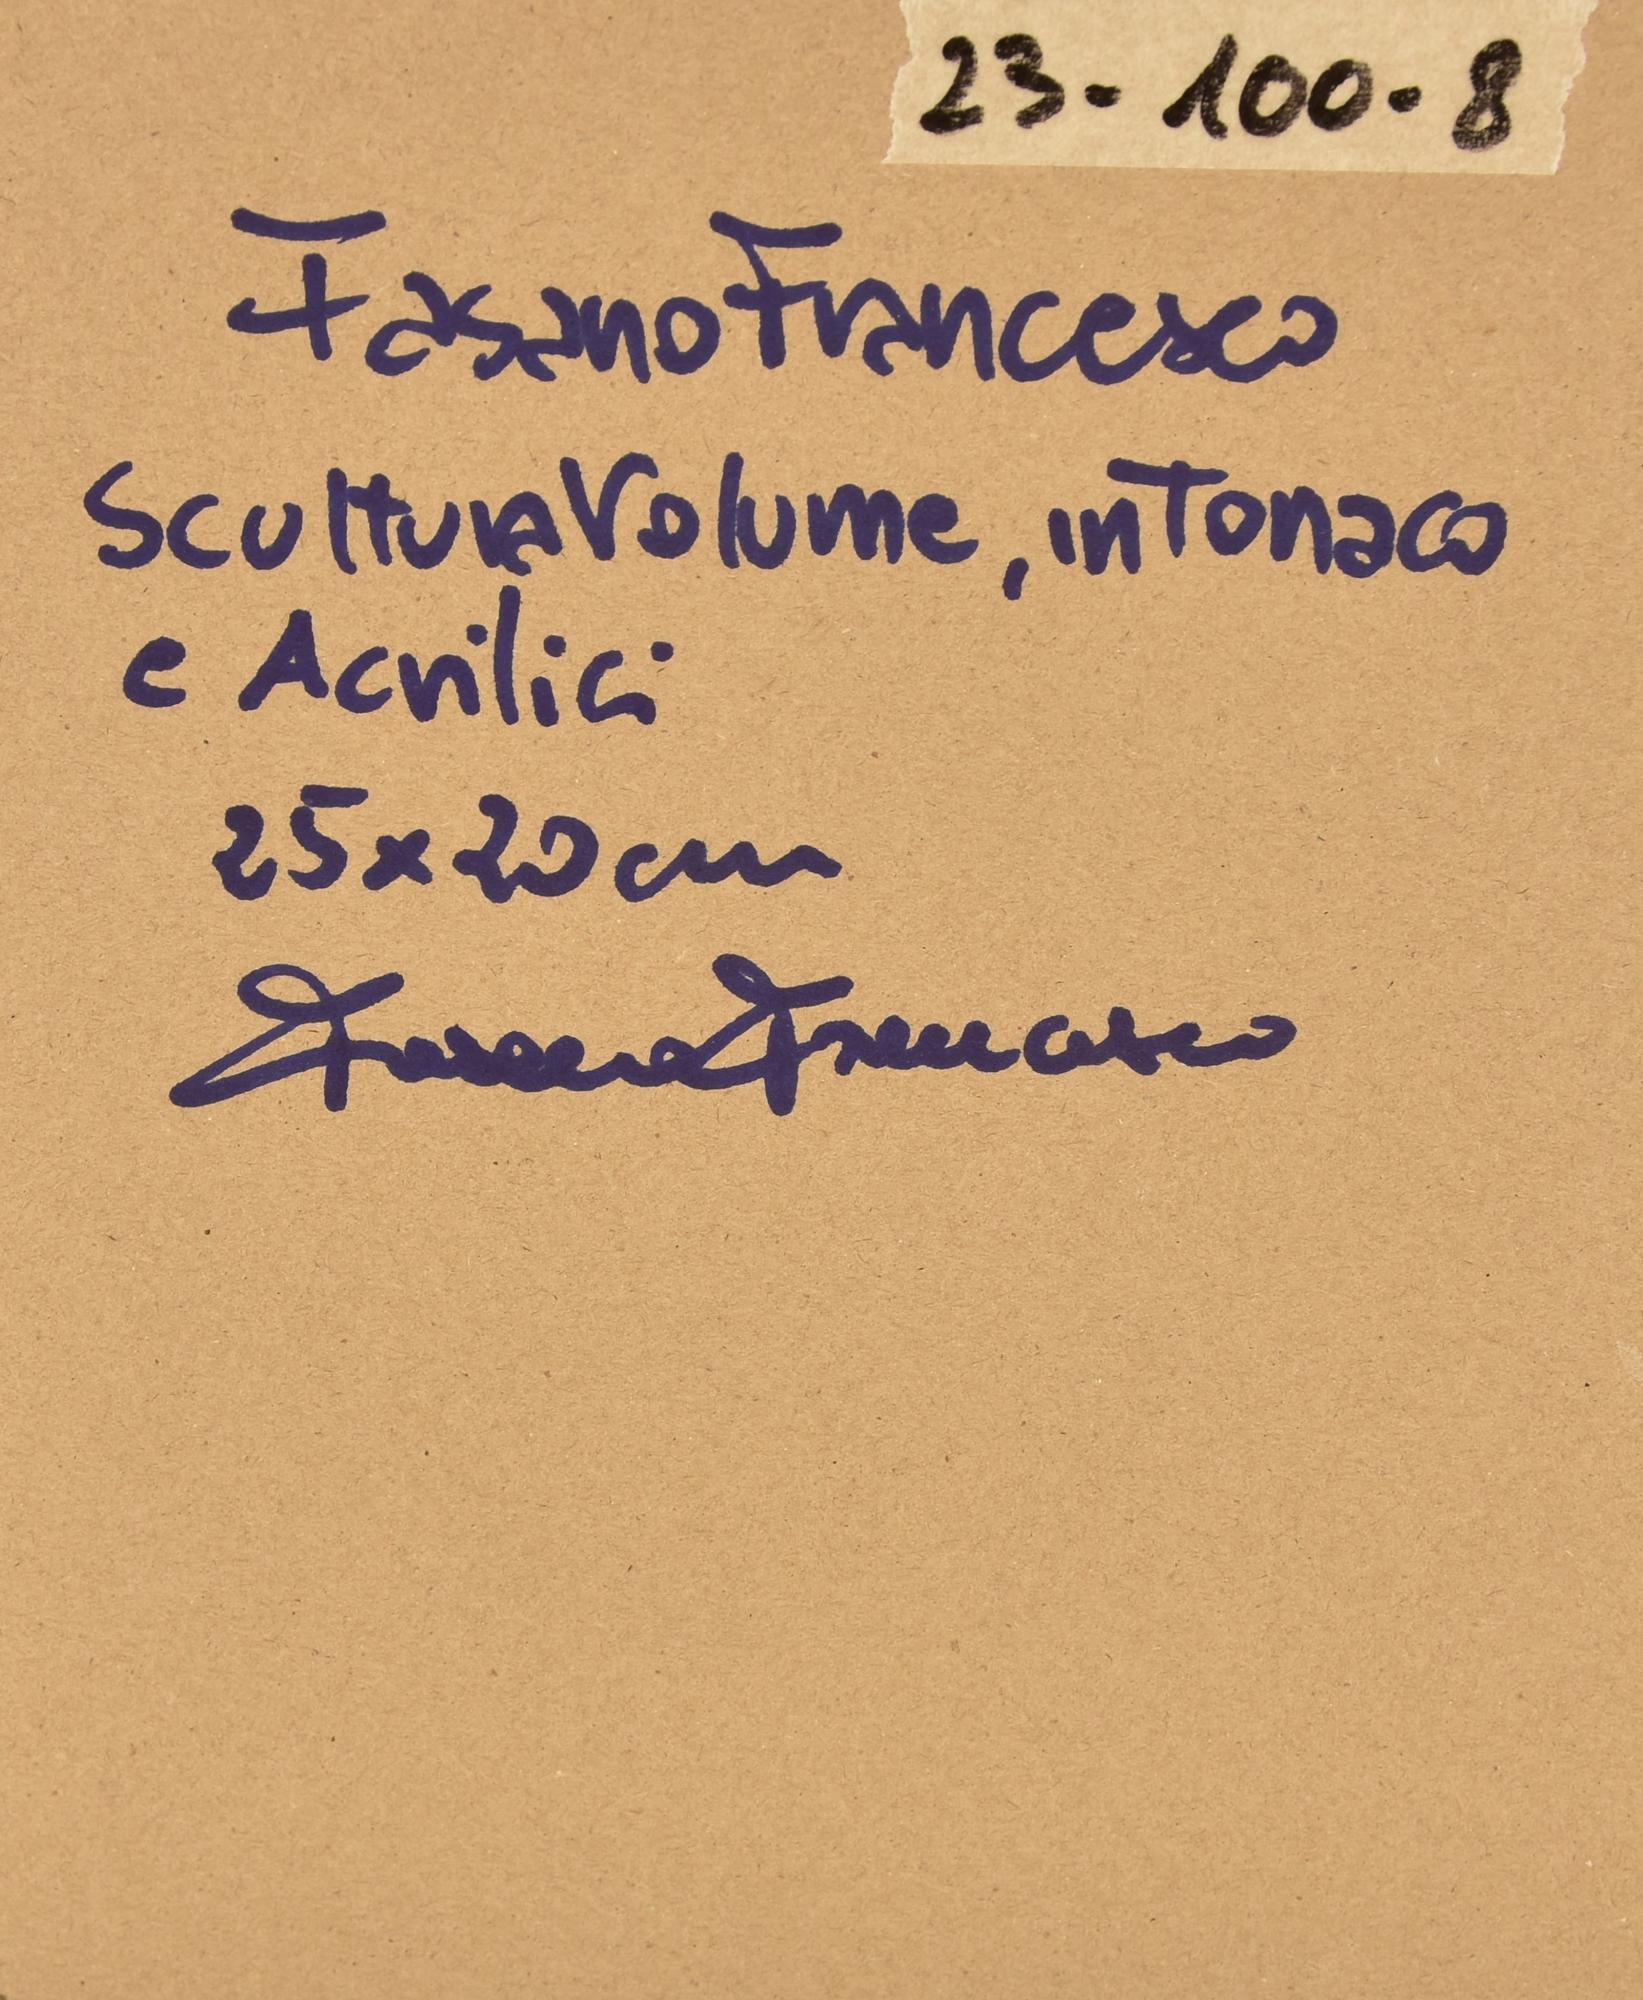 23-100-8
Fasano Francesco
Scultura Volume, in Tonaco
e Acrilici
25x20cm
Fasano Francesco